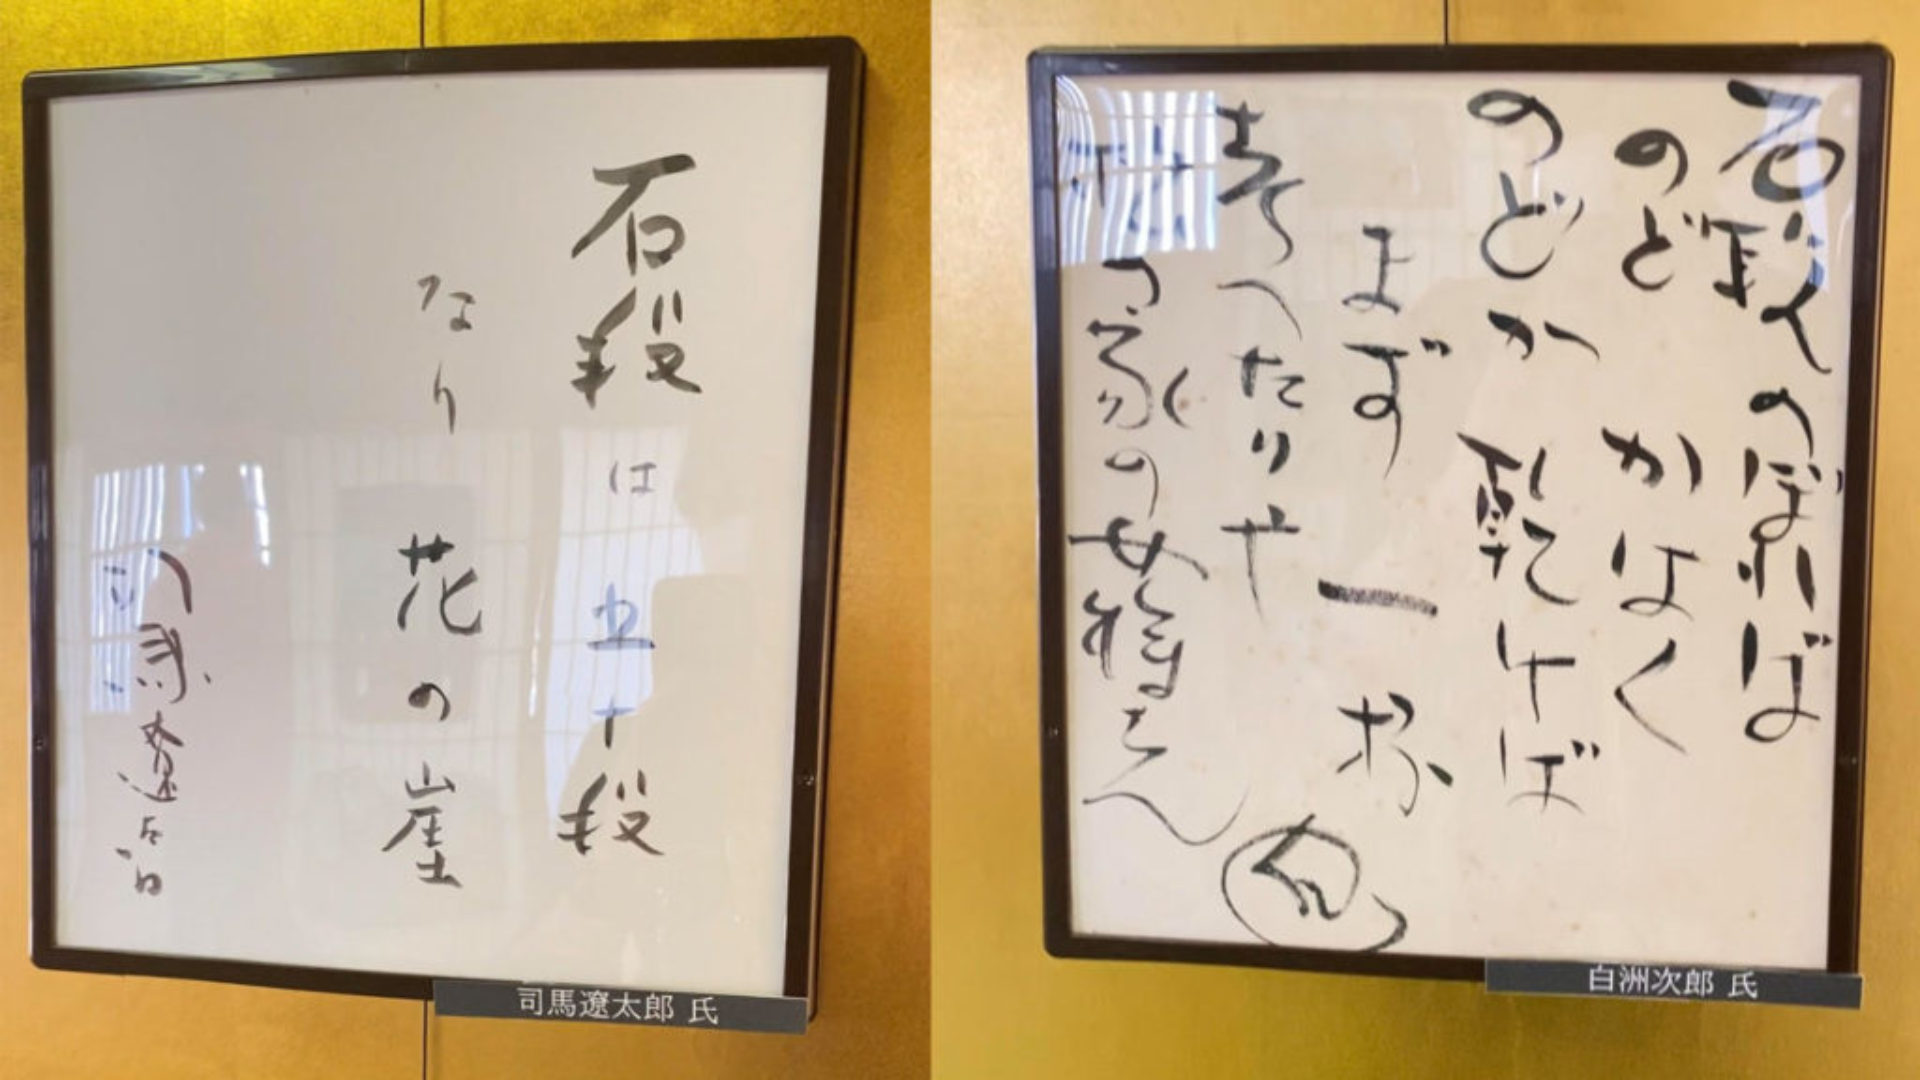 石段は五十段
なり 花の崖
司馬遼太郎
司馬遼太郎 氏
石段のぼれば
のど かはく
のどか 乾けば
まず 一杯
たりや
の
白洲次郎 氏